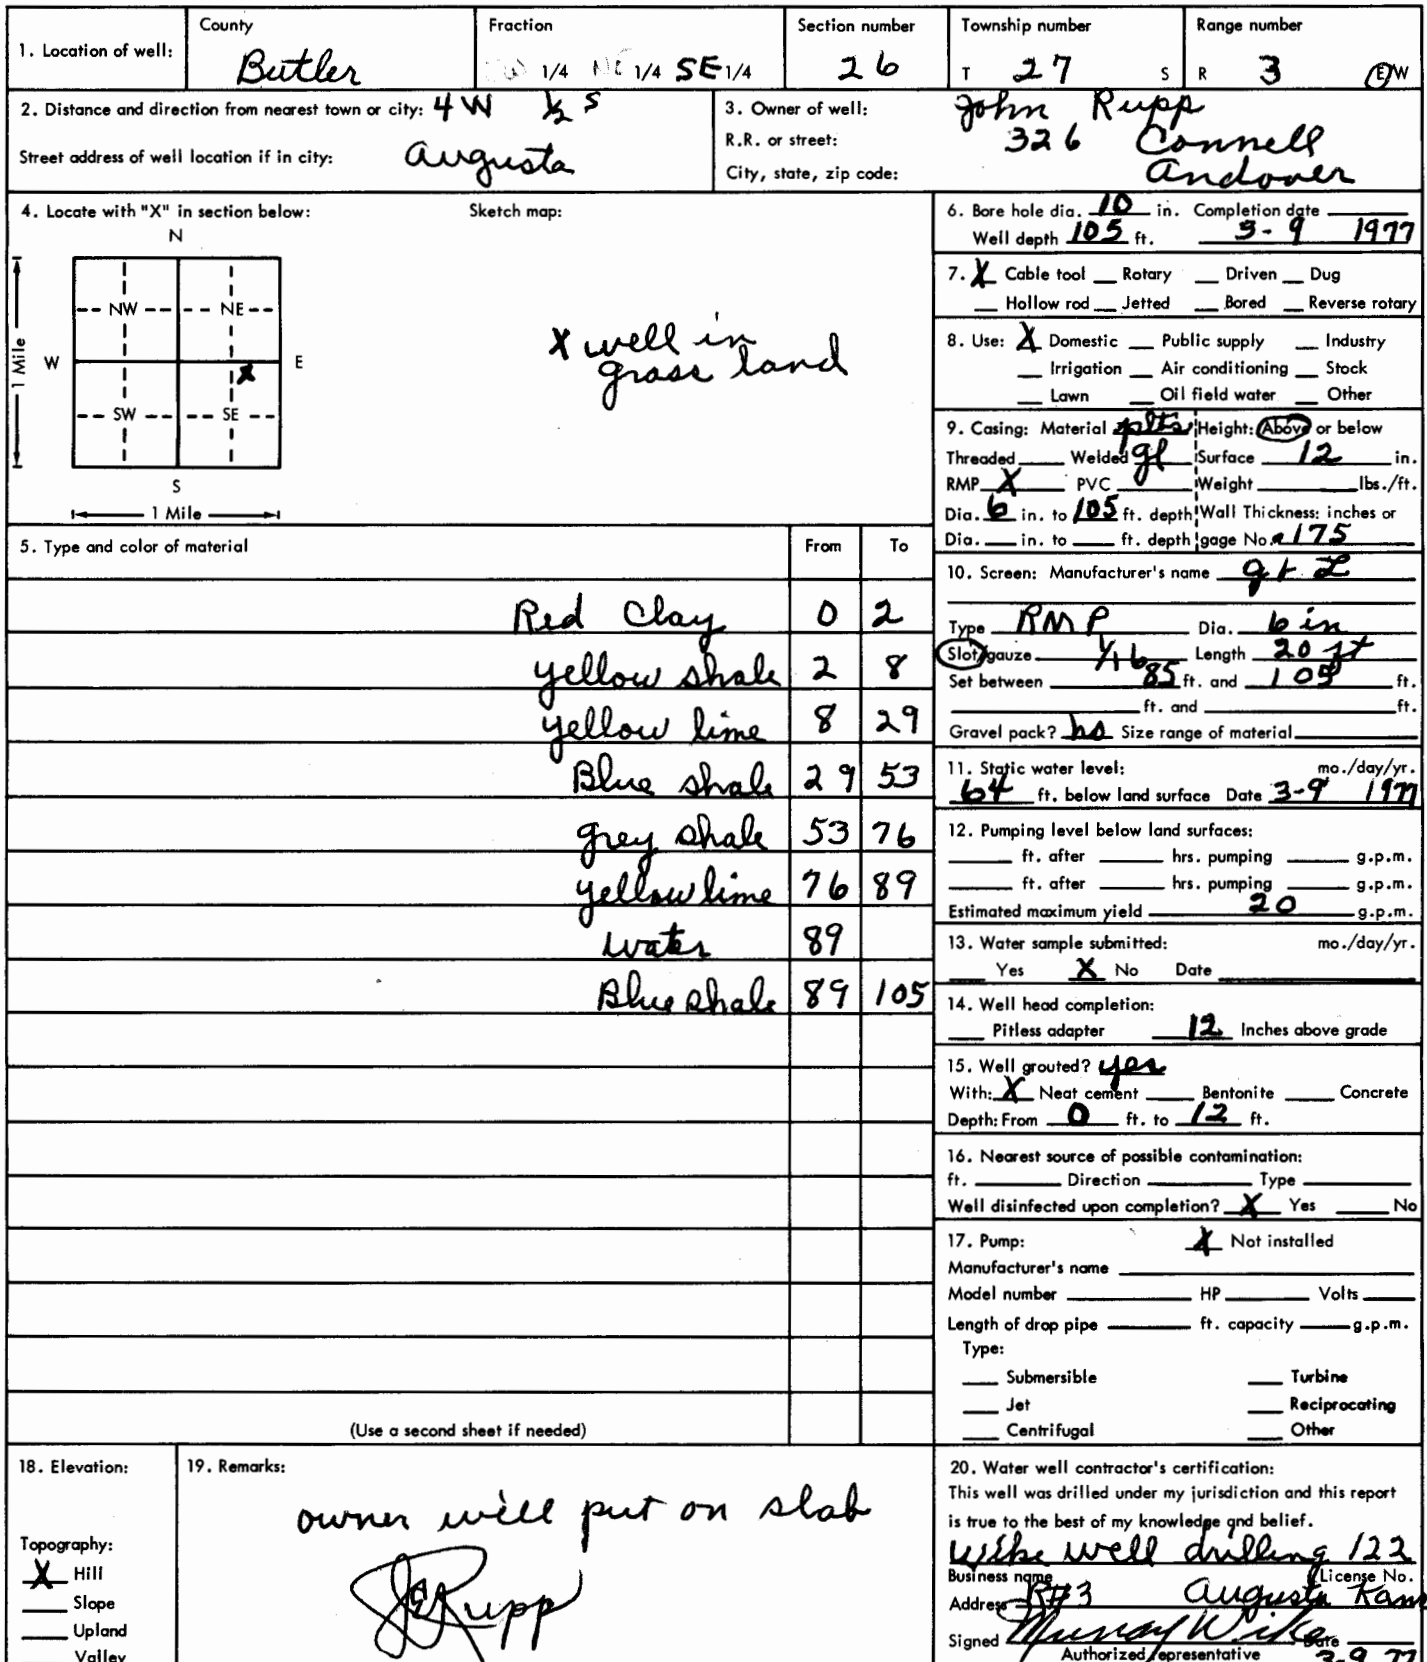 1. Location of well:
County
Butler
Fraction
1/4 NE 1/4 SE 1/4
Section number
26
Township number
T 27 S
Range number
R 3 E/W
2. Distance and direction from nearest town or city: 4 W 1/2 S
Street address of well location if in city: Augusta
3. Owner of well: John Rupp
R.R. or street: 326 Connell
City, state, zip code: Andover
4. Locate with "X" in section below:
Sketch map:
N
NW NE
W E
X
SW SE
S
1 Mile
1 Mile
X well in
grass land
5. Type and color of material From To
Red Clay 0 2
yellow shale 2 8
yellow lime 8 29
Blue shale 29 53
grey shale 53 76
yellow lime 76 89
water 89
Blue shale 89 105
(Use a second sheet if needed)
6. Bore hole dia. 10 in. Completion date
Well depth 105 ft. 3-9 1977
7. X Cable tool Rotary Driven Dug
Hollow rod Jetted Bored Reverse rotary
8. Use: X Domestic Public supply Industry
Irrigation Air conditioning Stock
Lawn Oil field water Other
9. Casing: Material Height: Above or below
Threaded Welded gl Surface 12 in.
RMP X PVC Weight lbs./ft.
Dia. 6 in. to 105 ft. depth Wall Thickness: inches or
Dia. in. to ft. depth gage No. .175
10. Screen: Manufacturer's name
Type RMP Dia. 6 in
Slot/gauze 1/16 Length 20 ft
Set between 85 ft. and 105 ft.
ft. and ft.
Gravel pack? no Size range of material
11. Static water level: mo./day/yr.
64 ft. below land surface Date 3-9 1977
12. Pumping level below land surfaces:
ft. after hrs. pumping g.p.m.
ft. after hrs. pumping g.p.m.
Estimated maximum yield 20 g.p.m.
13. Water sample submitted: mo./day/yr.
Yes X No Date
14. Well head completion:
Pitless adapter 12 Inches above grade
15. Well grouted? yes
With: X Neat cement Bentonite Concrete
Depth: From 0 ft. to 12 ft.
16. Nearest source of possible contamination:
ft. Direction Type
Well disinfected upon completion? X Yes No
17. Pump: X Not installed
Manufacturer's name
Model number HP Volts
Length of drop pipe ft. capacity g.p.m.
Type:
Submersible Turbine
Jet Reciprocating
Centrifugal Other
18. Elevation:
Topography:
X Hill
Slope
Upland
Valley
19. Remarks:
owner will put on slab
Rupp
20. Water well contractor's certification:
This well was drilled under my jurisdiction and this report
is true to the best of my knowledge and belief.
Wike well drilling 122
Business name License No.
Address R#3 Augusta Kans
Signed Murray Wike Date
Authorized representative 3-9 77